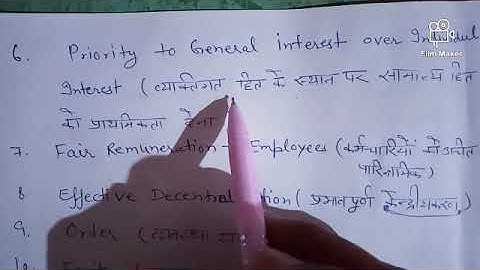 6. Priority to General interest over Individual
Interest (व्यक्तिगत हित के स्थान पर सामान्य हित
को प्राथमिकता देना
7. Fair Remuneration Employees (कर्मचारियों को उचित
पारिश्रमिक)
8 Effective Decentral tion ( प्रभावपूर्ण केन्द्रीयकरण )
9. Order (व्यवस्था
10.
Film Maker